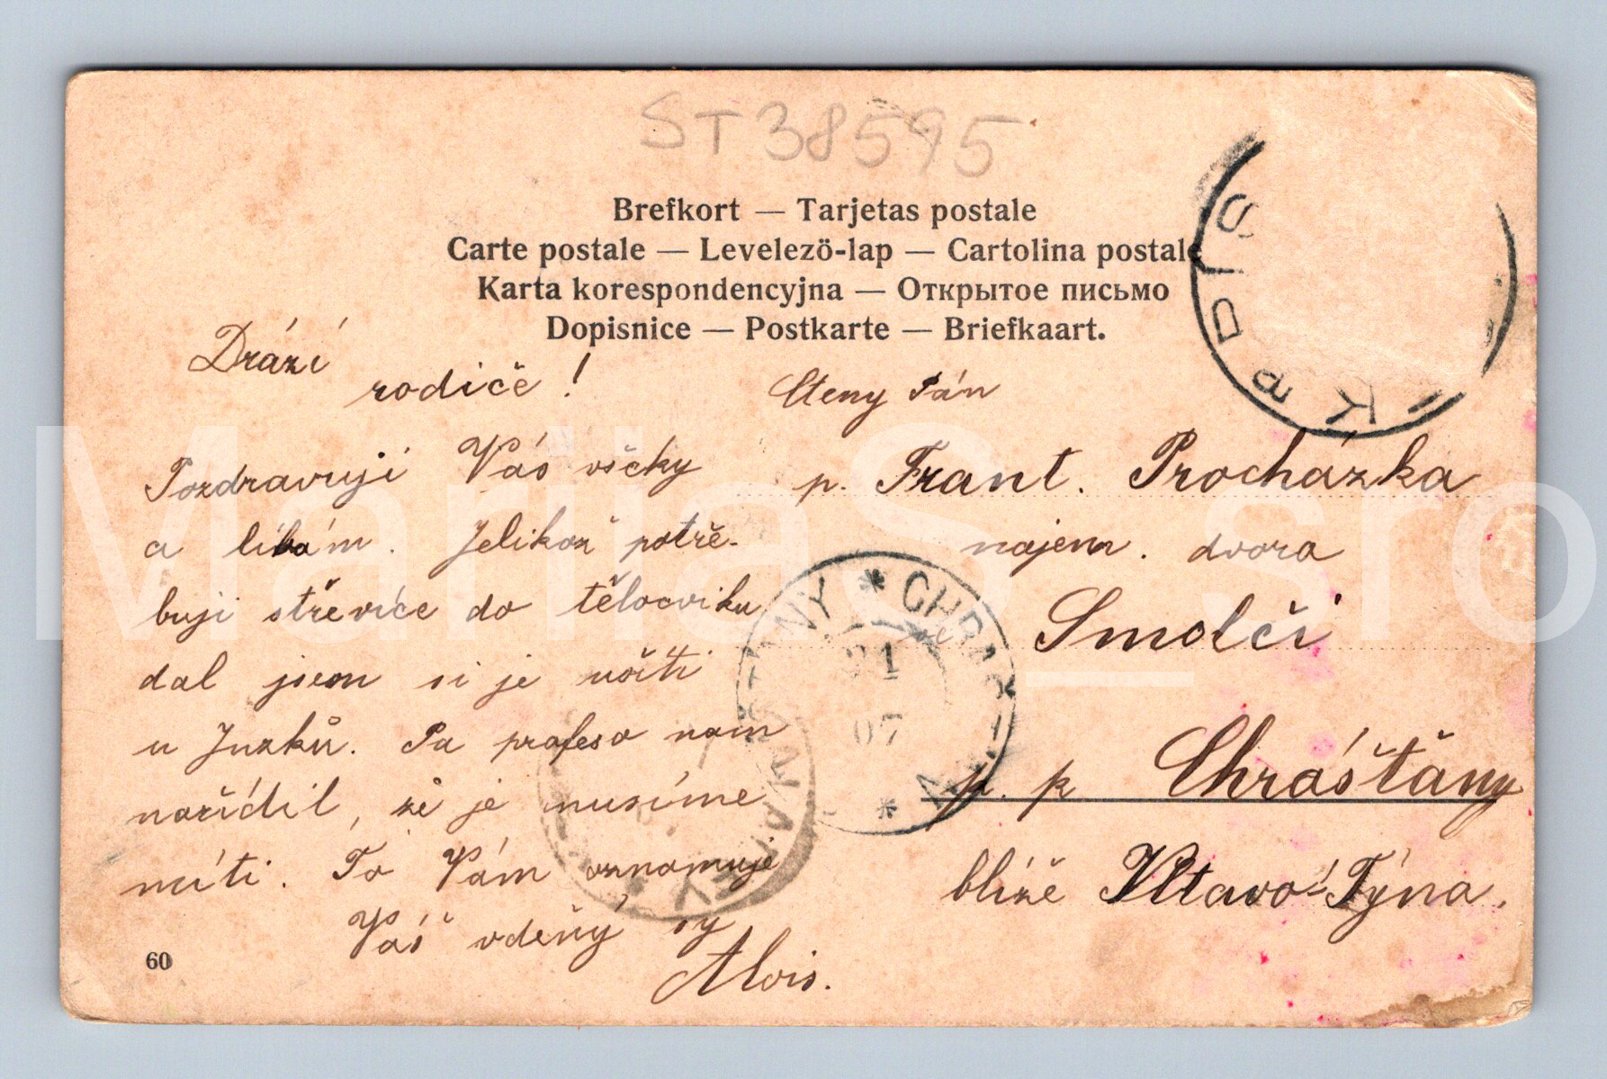 ST38595
Brefkort — Tarjetas postale
Carte postale — Levelezö-lap — Cartolina postale
Karta korespondencyjna — Открытое письмо
Dopisnice — Postkarte — Briefkaart.
Drází
rodiče!
Pozdravuji Vás všcky
a líbám. Jelikož potře-
buji střevíce do tělocviku
dal jsem si je ušíti
u Juzků. Pa profeso nam
nařídil, že je musíme
míti. To Vám oznamuje
Váš vděčný sy
Alois.
60
Cteny Pán
p. Frant. Procházka
najem. dvora
Smolči
p. p. Chrášťány
blíže Vltavo-Týna.
CHRÁŠ
ŤANY
21
07
MartinS_sro